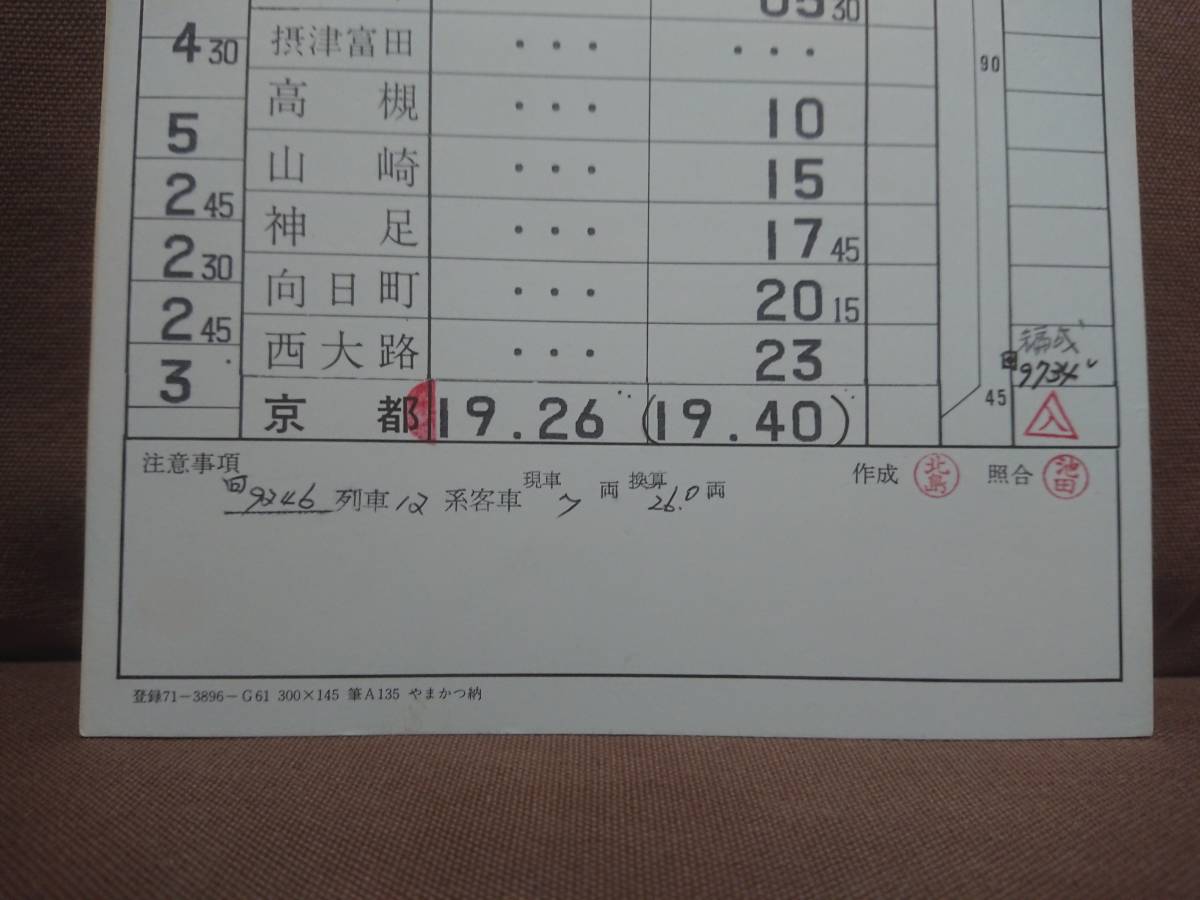 05 30
4 30 摂津富田 ・・・ ・・・ 90
高槻 ・・・ 10
5
山崎 ・・・ 15
2 45
神足 ・・・ 17 45
2 30
向日町 ・・・ 20 15
2 45
西大路 ・・・ 23 編成
回9734
3
京都 19.26 (19.40) 45 入
注意事項 作成 北島 照合 池田
回9246 列車 12 系客車 現車 7 両 換算 26.0 両
登録71-3896-G61 300×145 筆A135 やまかつ納